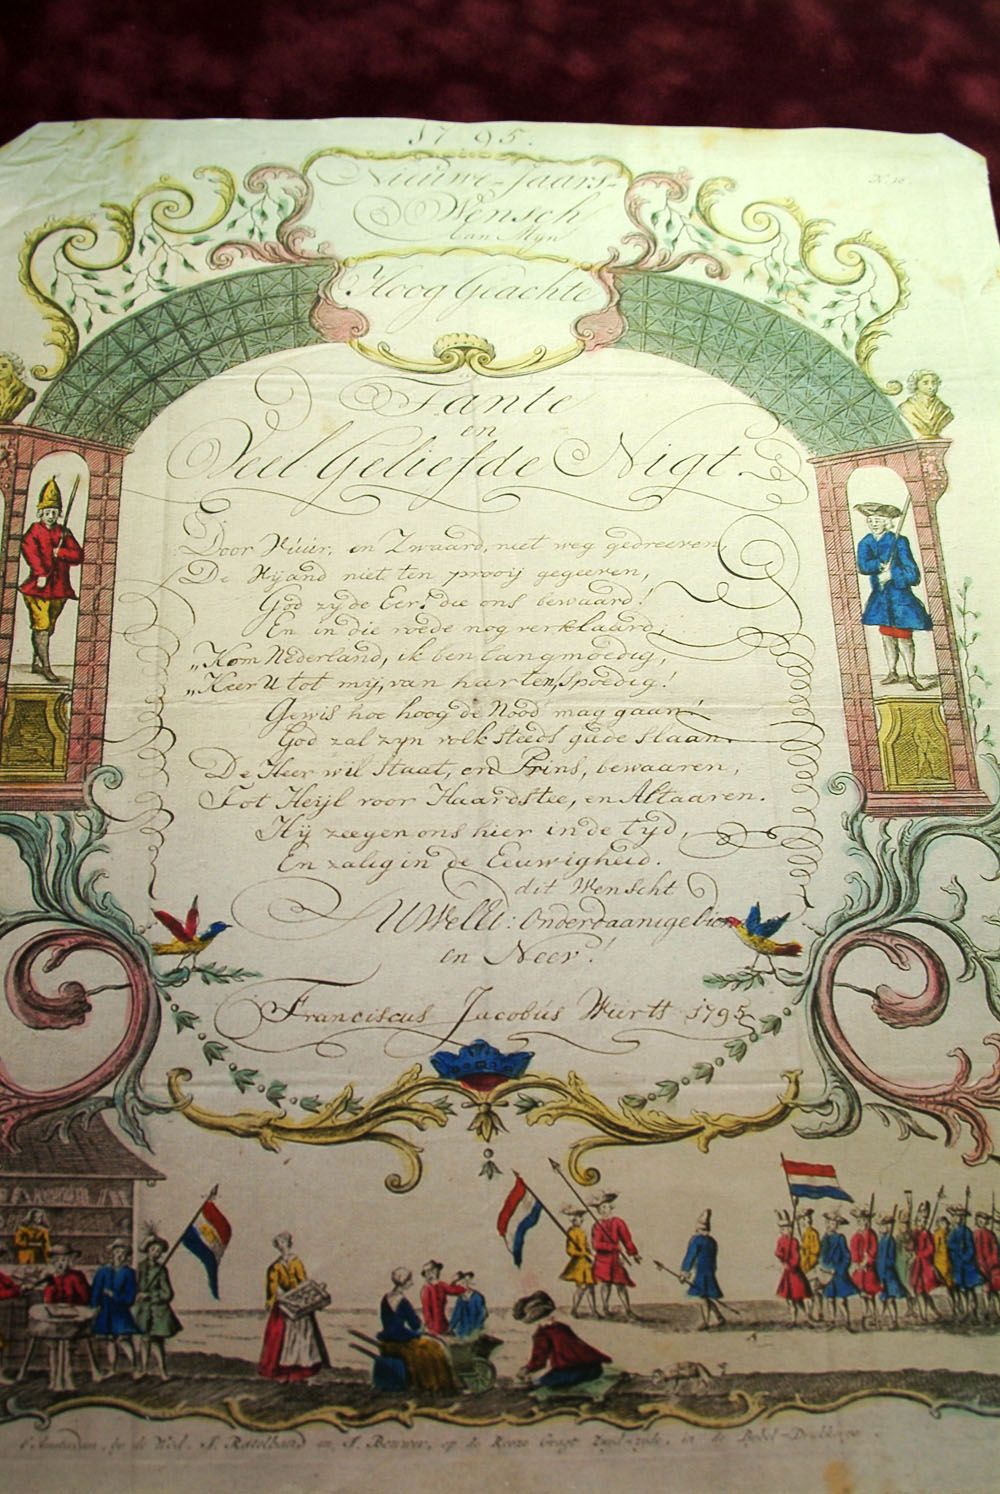 1795.
Nieuwe-Jaars-
Wensch
aan Myn
Hoog Geachte
Tante
en
Veel Geliefde Nigt.
Door Vuur, en Zwaard, niet weg gedreeven
De Vijand niet ten prooij gegeeven,
God zy de Eer! die ons bewaard!
En in die rede nog verklaard;
„Kom Nederland, ik ben langmoedig,
„Keer U tot my, van harten, spoedig!
Gewis hoe hoog de Nood mag gaan!
God zal zyn volk steeds gade slaan.
De Heer wil Staat, en Prins, bewaaren,
Tot Heijl voor Haardstee, en Altaaren.
Hij zeegen ons hier in de tyd,
En zalig in de Eeuwigheid.
dit Wenscht
en Neev!
Franciscus Jacobús 1795
t'Amsterdam, by de Wed. en op de Zuyd-zyde, in de